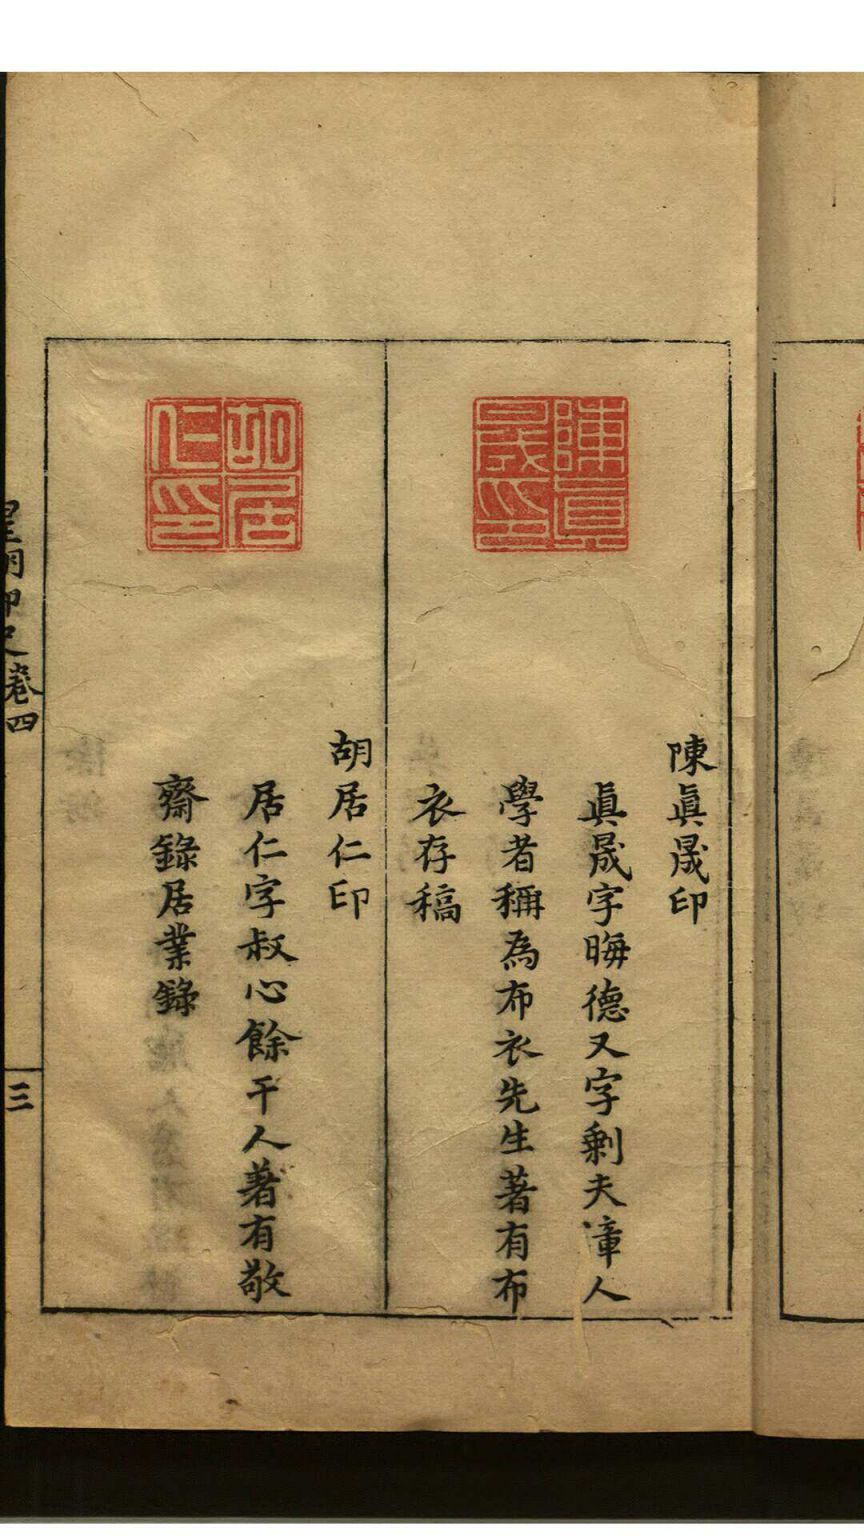 陳眞晟印
陳眞晟印
眞晟字晦德又字剩夫漳人
學者稱為布衣先生著有布
衣存稿
胡居仁印
胡居仁印
居仁字叔心餘干人著有敬
齋錄居業錄
皇朝印史卷四
三